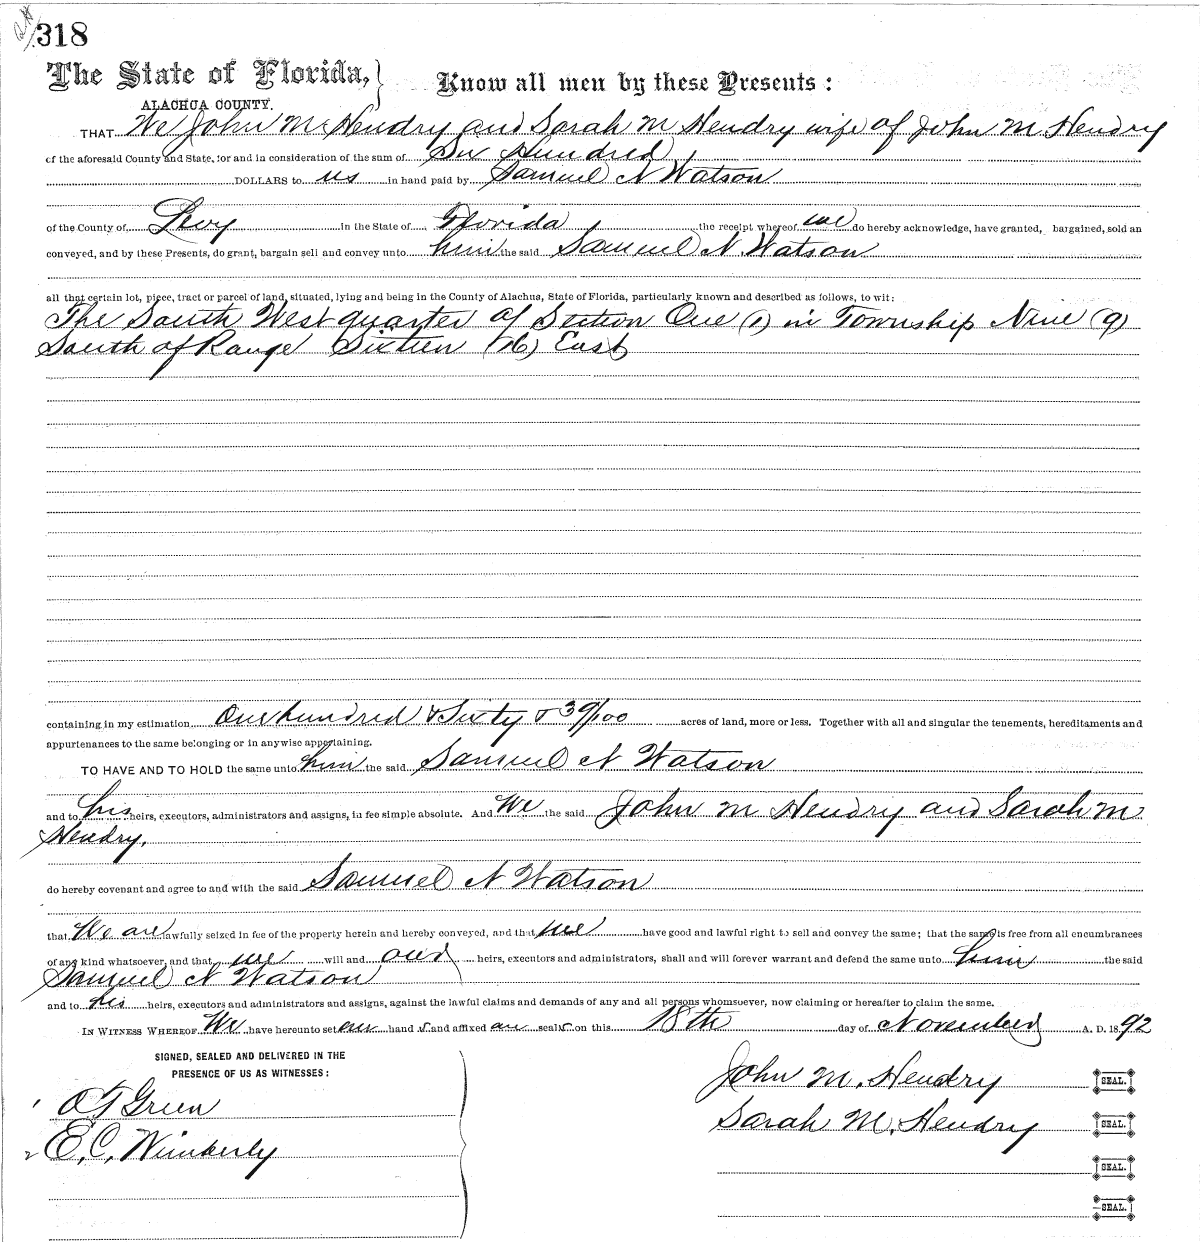 318
The State of Florida,
ALACHUA COUNTY.
Know all men by these Presents:
THAT We John M Hendry and Sarah M Hendry wife of John M Hendry
of the aforesaid County and State, for and in consideration of the sum of Six Hundred
DOLLARS to us in hand paid by Samuel N Watson
of the County of Levy In the State of Florida the receipt whereof we do hereby acknowledge, have granted, bargained, sold an
conveyed, and by these Presents, do grant, bargain sell and convey unto him the said Samuel N Watson
all that certain lot, piece, tract or parcel of land, situated, lying and being in the County of Alachua, State of Florida, particularly known and described as follows, to wit:
The South West quarter of Section One (1) in Township Nine (9)
South of Range Sixteen (16) East
containing in my estimation One hundred & Sixty & 39/100 acres of land, more or less. Together with all and singular the tenements, hereditaments and
appurtenances to the same belonging or in anywise appertaining.
TO HAVE AND TO HOLD the same unto him the said Samuel N Watson
and to his heirs, executors, administrators and assigns, in fee simple absolute. And We the said John M Hendry and Sarah M
Hendry.
do hereby covenant and agree to and with the said Samuel N Watson
that We are lawfully seized in fee of the property herein and hereby conveyed, and that we have good and lawful right to sell and convey the same; that the same is free from all encumbrances
of any kind whatsoever, and that we will and our heirs, executors and administrators, shall and will forever warrant and defend the same unto him the said
Samuel N Watson
and to his heirs, executors and administrators and assigns, against the lawful claims and demands of any and all persons whomsoever, now claiming or hereafter to claim the same.
IN WITNESS WHEREOF We have hereunto set our hand s and affixed our seal s on this 18th day of November A. D. 1892
SIGNED, SEALED AND DELIVERED IN THE
PRESENCE OF US AS WITNESSES:
John M. Hendry SEAL.
1 O F Green
Sarah M. Hendry SEAL.
2 E. C. Wimberly
SEAL.
SEAL.